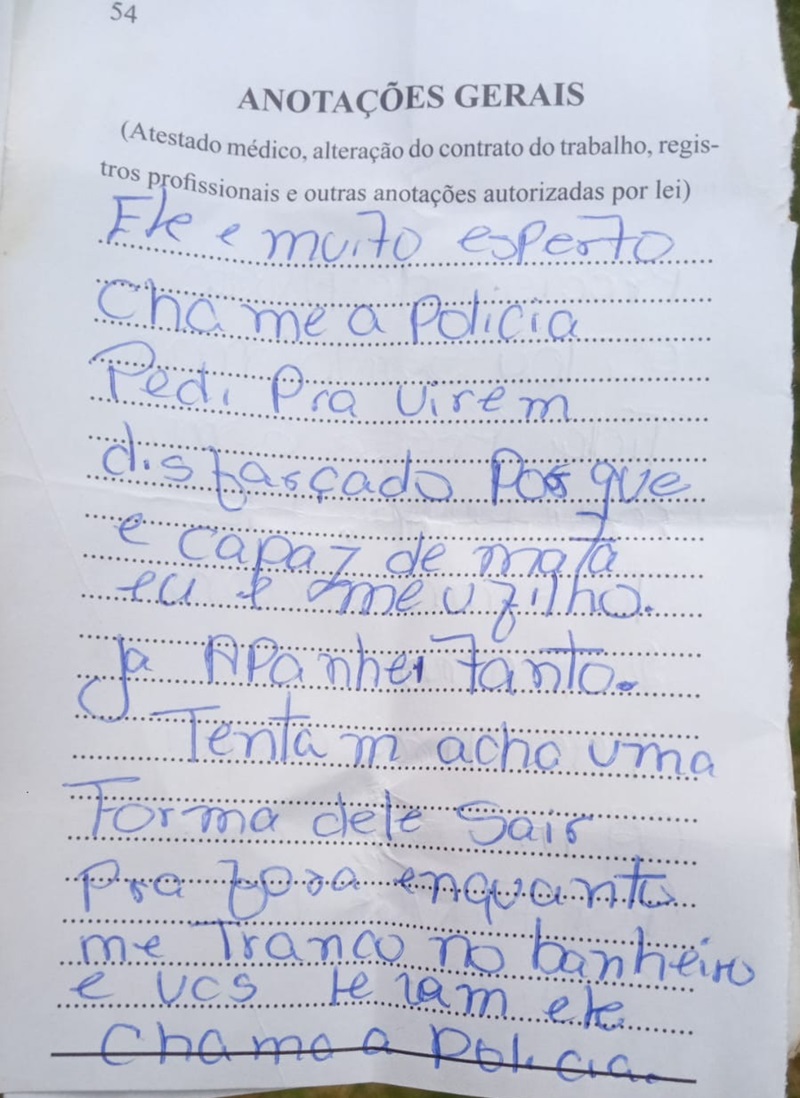 54
ANOTAÇÕES GERAIS
(Atestado médico, alteração do contrato do trabalho, regis-
tros profissionais e outras anotações autorizadas por lei)
Ele e muito esperto
Chame a Policia
Pedi Pra virem
disfarçado Porque
e capaz de mata
eu e meu filho.
Ja APanhei Tanto.
Tentam acho uma
Forma dele Sair
Pra fora enquanto
me Tranco no banheiro
e vcs levam ele
Chama a Policia.